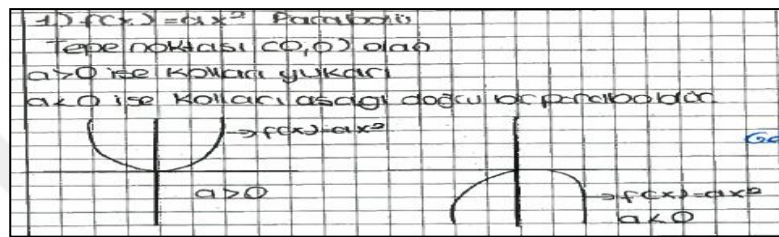 1) f(x)=ax² Parabolü
Tepe noktası (0,0) olan
a>0 ise kolları yukarı
a<0 ise kolları aşağı doğru bir paraboldür.
→f(x)=ax²
a>0
→f(x)=ax²
a<0